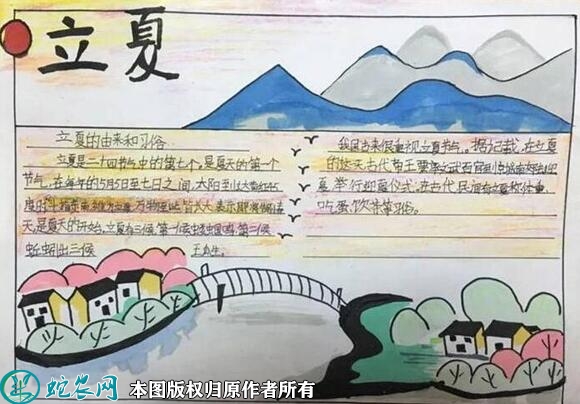 立夏
立夏的由来和习俗
立夏是二十四节气中的第七个,是夏天的第一个
节气,在每年的5月5日至七日之间,太阳到达黄经45
度时
万物至此皆长大
天,是夏天的开始,立夏有三候,第一候 第二候
蚯蚓出三候 王瓜生。
我国古来很重视立夏节气,据记载,在立夏
的这天古代帝王要率文武百官到京城南郊去迎
夏举行迎夏仪式,在古代民间有立夏称体重,
吃蛋,饮茶等习俗。
蛇农网
本图版权归原作者所有